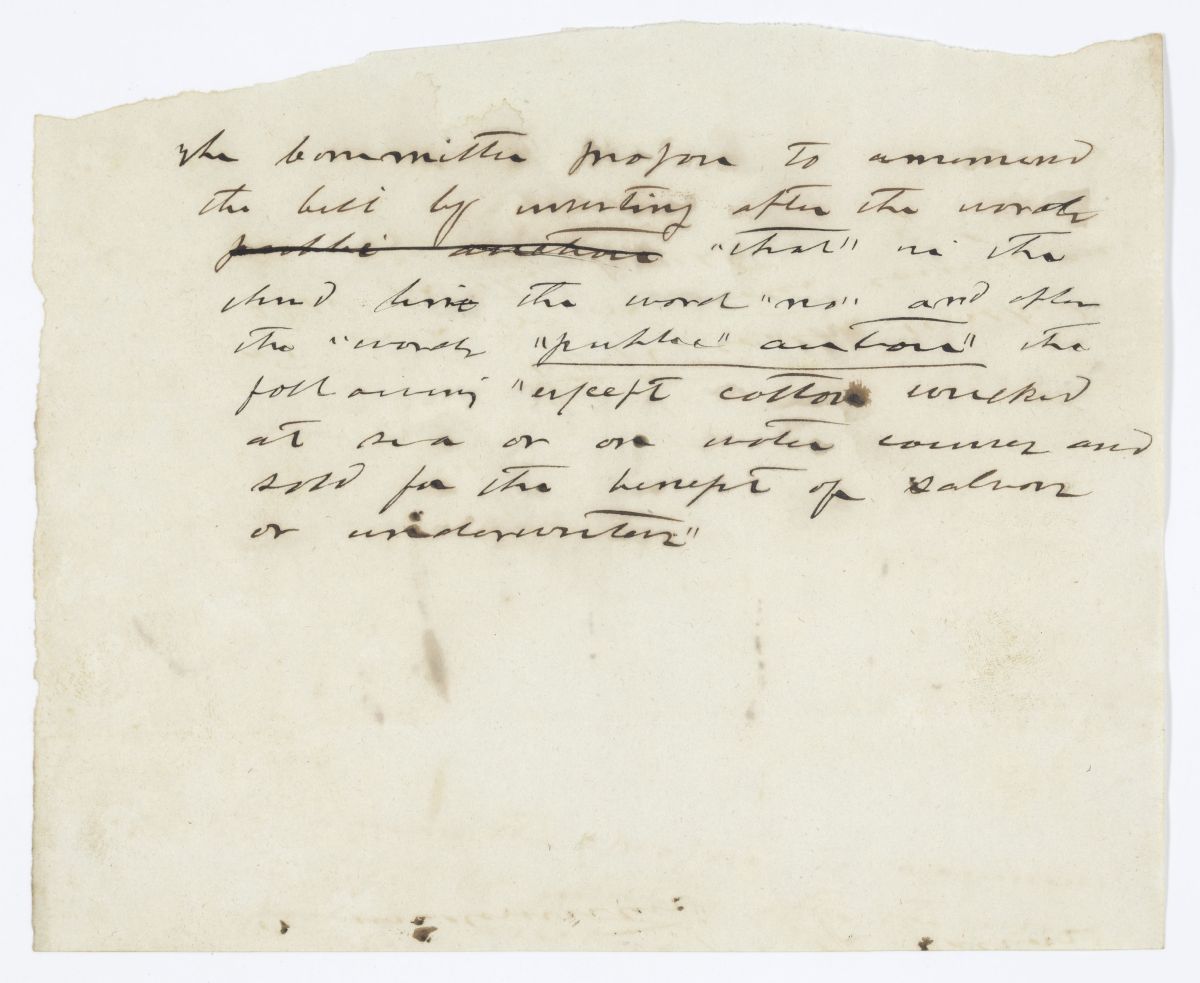 The Committee propose to amemend
the bill by inserting after the words
public auction "that" in the
third line the word "no" and after
the "words "public" auction" the
following "except cotton wrecked
at sea or on water courses and
sold for the benefit of salvors
or underwriters"